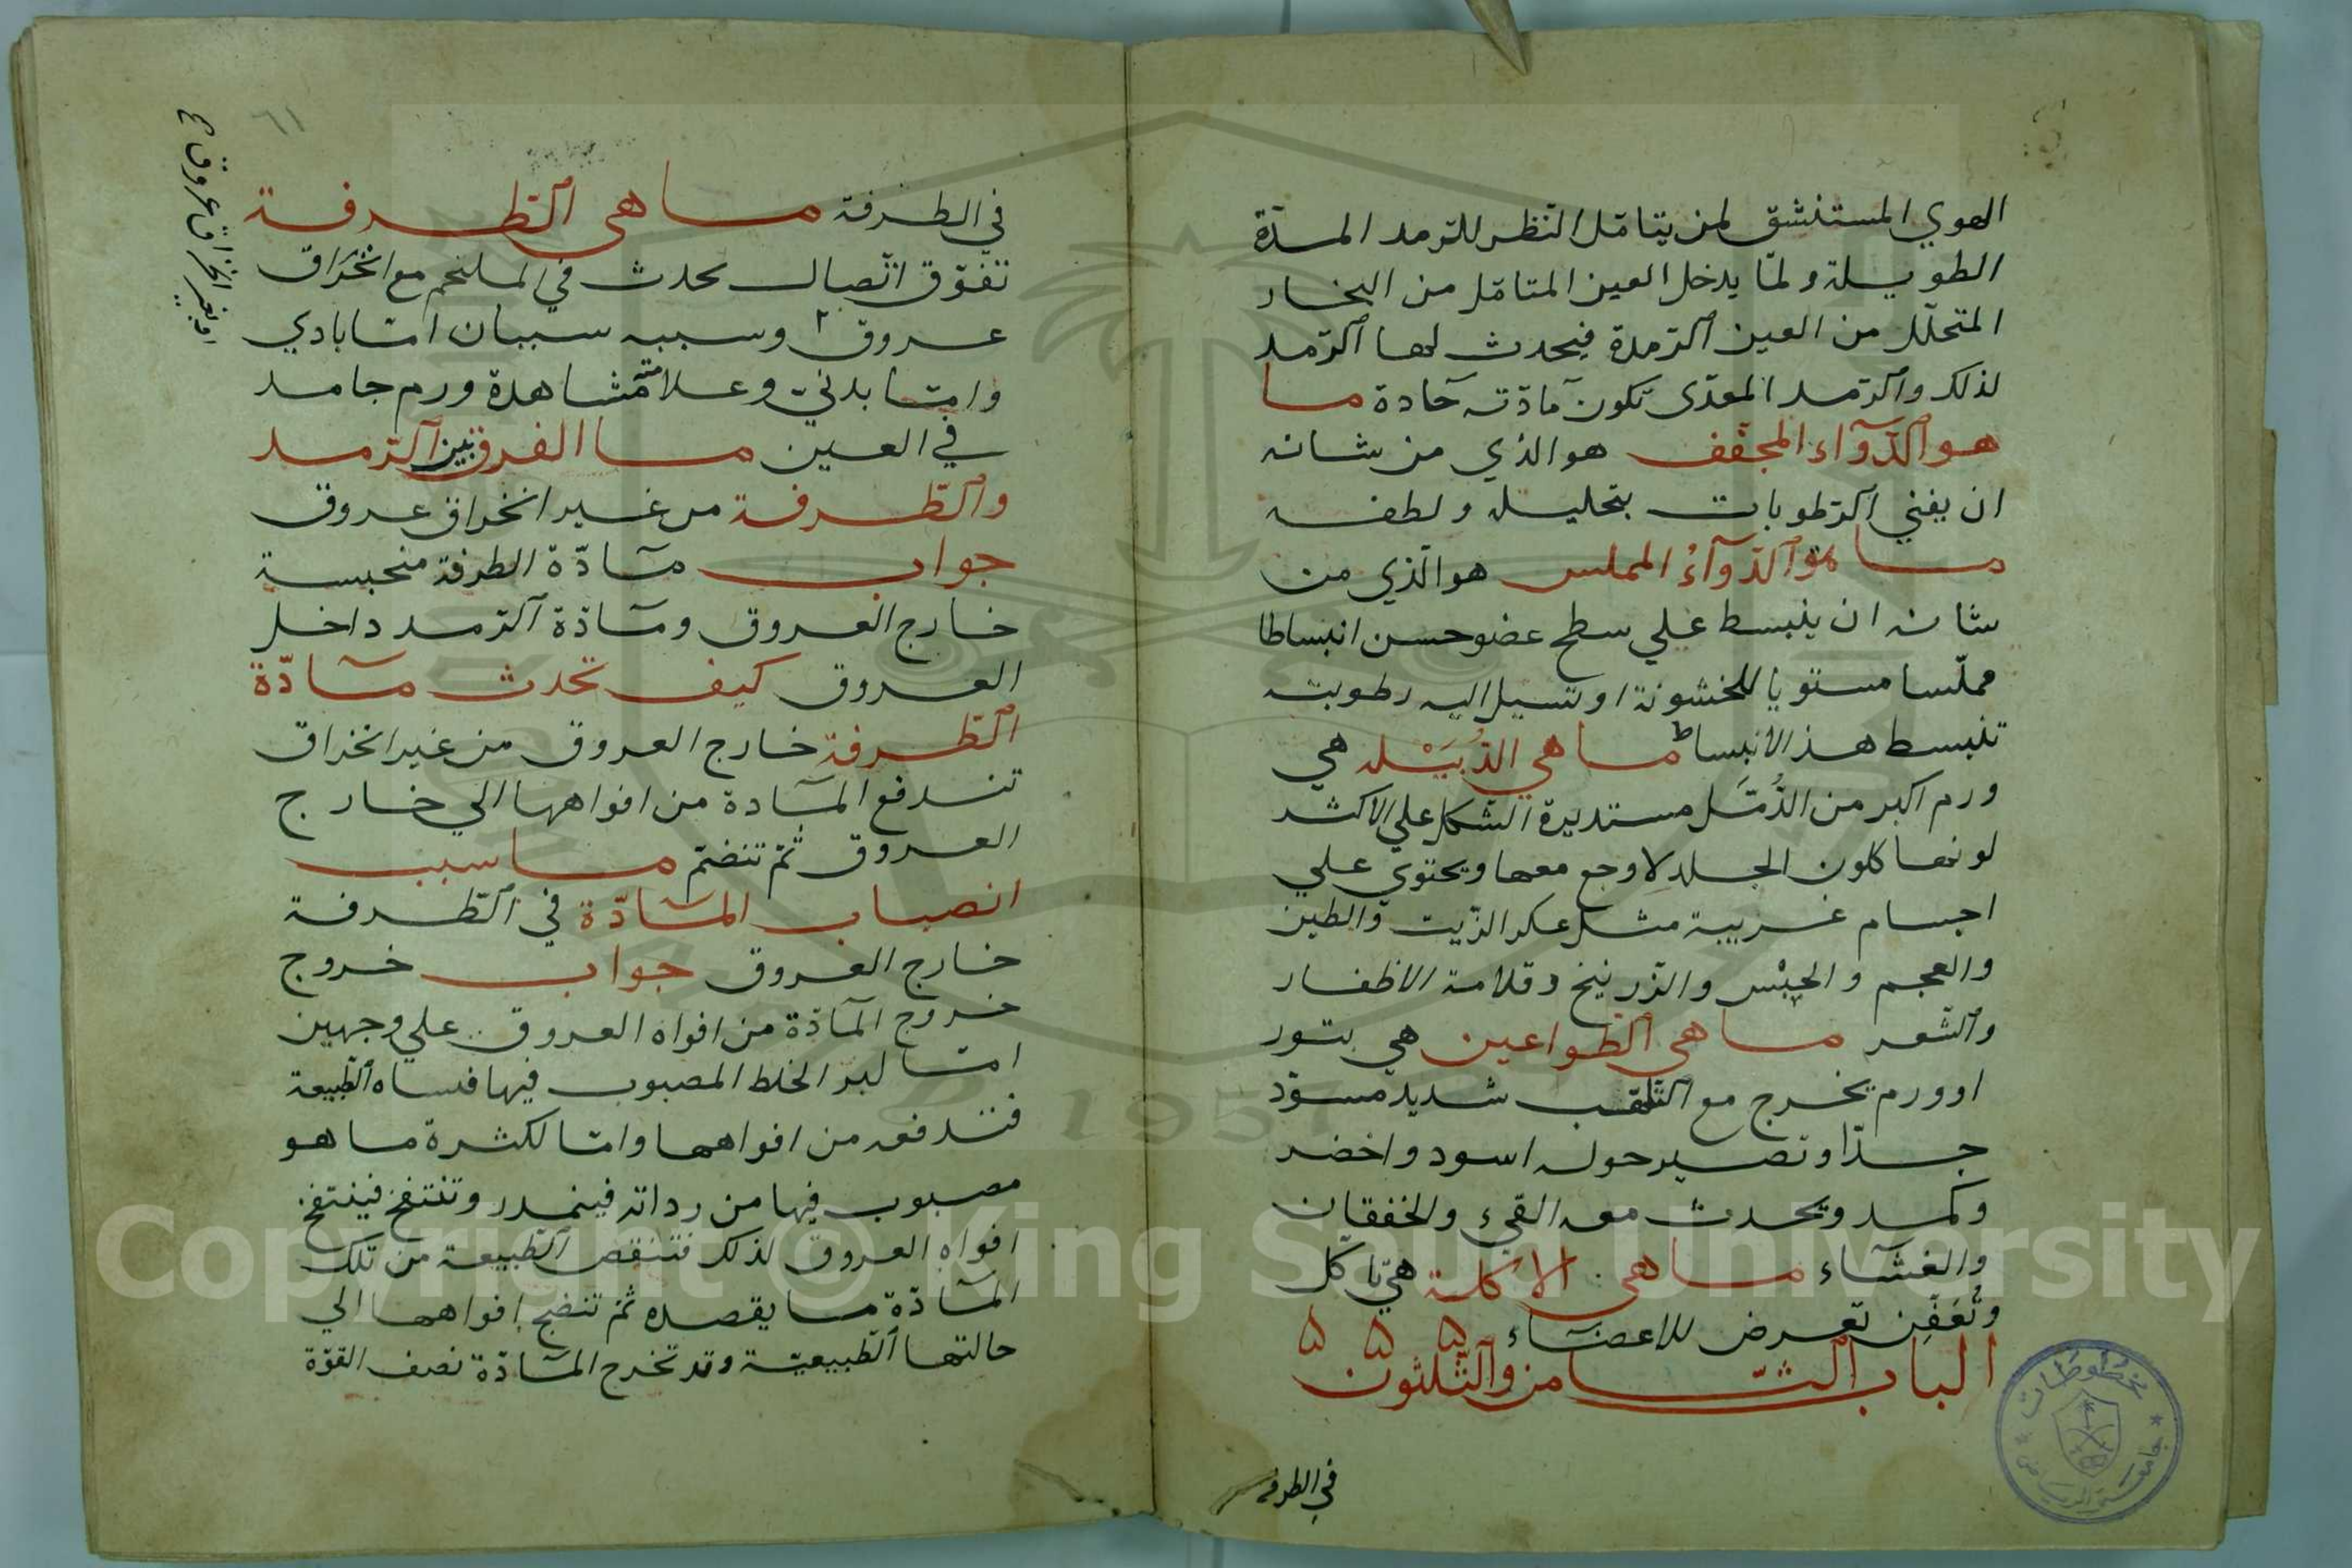 الهوي المستنشق لمن يتامّل النّظر للرّمد المدّة
الطويلة ولمّا يدخل العين المتامّل من البخار
المتحلّل من العين الرّمدة فيحدث لها الرّمد
لذلك والرّمد المعدّى تكون مادّته حادة ما
هو الدّوآء المجفّف هو الذي من شانه
ان يفني الرّطوبات بتحليله ولطفه
ما هو الدّوآءُ المملس هو الّذي من
شانه ان ينبسط علي سطح عضو حسن انبساطا
مملّسا مستويا للخشونة او تسيل اليه رطوبته
تنبسط هذ الانبساط ما هي الدُّبَيْله هي
ورم اكبر من الدُمّل مستديرة الشكل علي الاكثر
لونها كلون الجلد لا وجع معها ويحتوي علي
اجسام غريبة مثل عكر الزّيت والطين
والعجم والجبْس والزّرنيخ وقلامة الاظفار
والشّعر ما هي الطّواعين هي بثور
او ورم يخرج مع التّلهّب شديد مسوّد
جدّا وتصير حوله اسود واخضر
وكمد ويحدث معه القيء والخفقان
والغشاء ما هي الاكلة هي تاكل
وتُعَفِّن تعرض للاعضآء ه ه ه
الباب الثّامن والثّلثون
في الطرفه
Copyright © King Saud University
1957
مخطوطات
جامعة الرياض
٦١
في الطرفة ما هي الطّرفة
تفرّق اتّصال يحدث في الملتحم مع انخراق
عروق ٢ وسببه سببان امّا بادي
وامّا بدنيّ وعلامته مشاهدة ورم جامد
في العين ما الفرق بين الرّمد
والطّرفة من غير انخراق عروق
جواب مآدّة الطرفة منحبسة
خارج العروق ومآدّة الرّمد داخل
العروق كيف تحدث مآدّة
الطّرفة خارج العروق من غير انخراق
تندفع المآدة من افواهها الي خارج
العروق ثمّ تنضمّ ما سبب
انصباب المآدّة في الطّرفة
خارج العروق جواب خروج
خروج المآدّة من افواه العروق علي وجهين
امّا لبر الخلط المصبوب فيها الطّبيعة
فتندفعه من افواهها وامّا لكثرة ما هو
مصبوب فيها من رداته وتنتفخ فينتفخ
افواه العروق لذلك فتنقص الطّبيعة من تلك
المآدّة ما يقصده ثمّ افواهها الي
حالتها الطّبيعيّة وقد تخرج المآدّة نصف القوّة
او بغير انخراق عروق